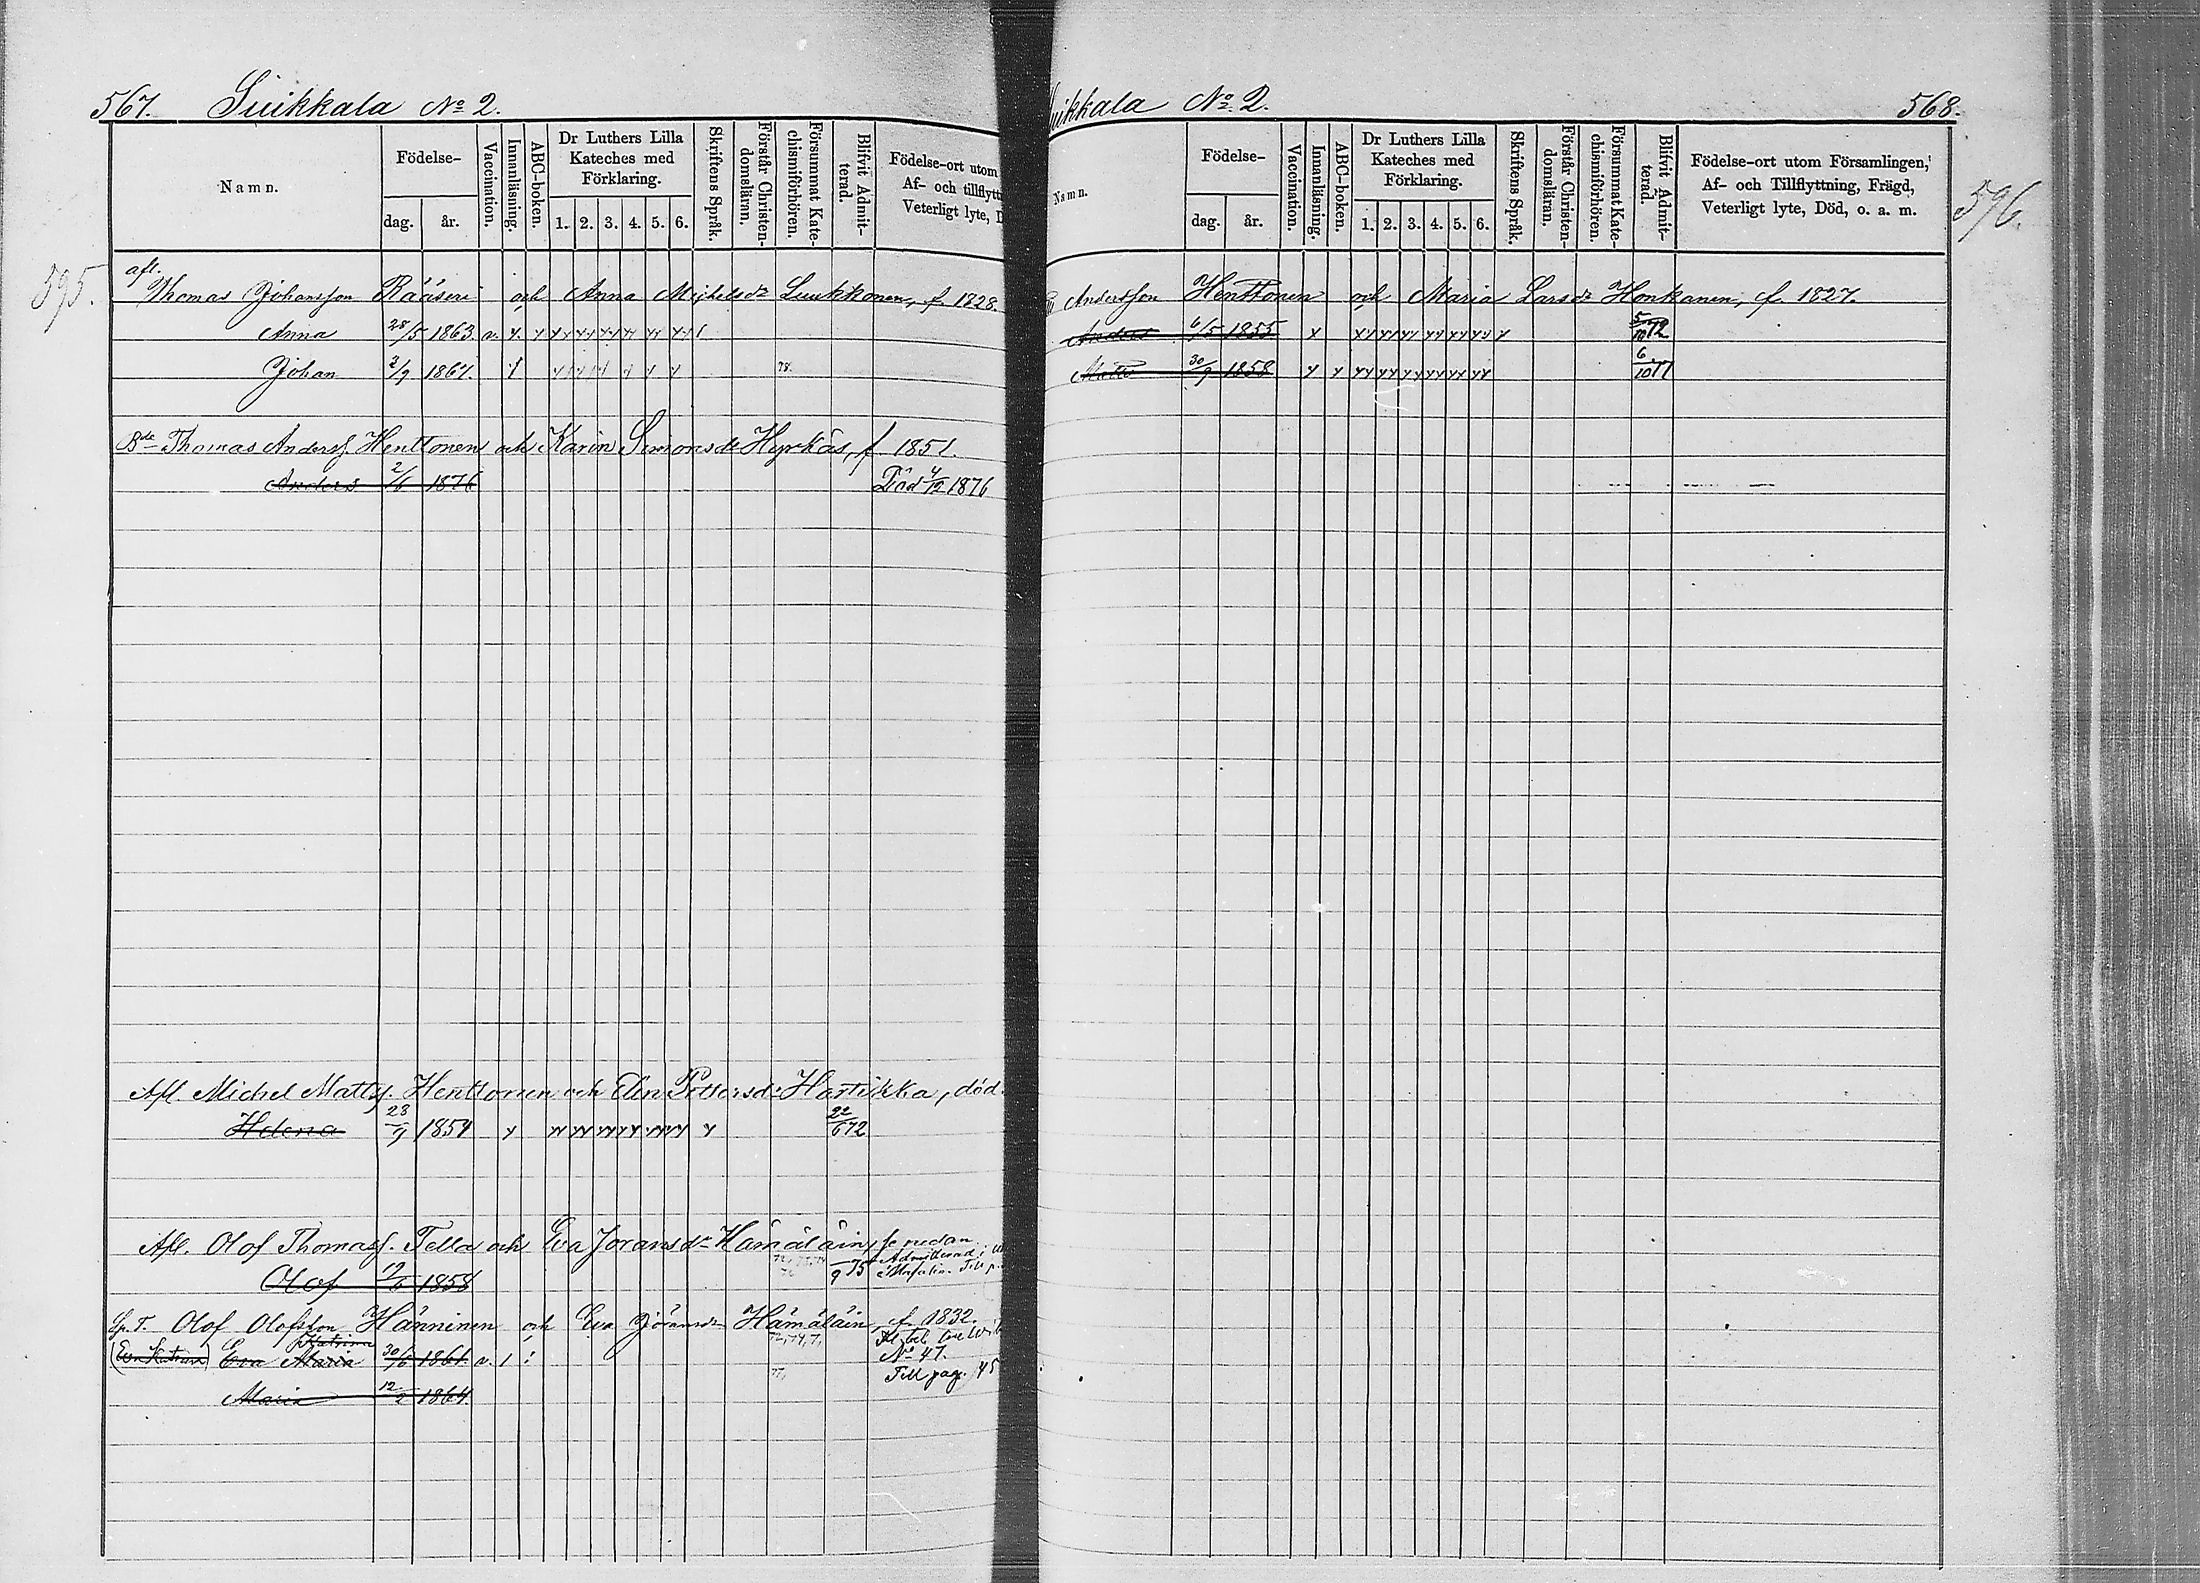 567. Suikkala No 2.
Namn.
Födelse-
dag. år.
Vaccination.
Innanläsning.
ABC-boken.
Dr Luthers Lilla
Kateches med
Förklaring.
1. 2. 3. 4. 5. 6.
Skriftens Språk.
Förstår Christen-
domsläran.
Försummat Kate-
chismiförhören.
Blifvit Admit-
terad.
Födelse-ort utom
Af- och tillflytt
Veterligt lyte, D
595.
afl.
Thomas Johansson Rääseni och Anna Mihelsdr Luukkonen, f 1828.
Anna 28/5 1863. v.
Johan 2/9 1867. 78.
Bde Thomas Anderss. Henttonen och Karin Simonsdr Hyrkäs, f 1851.
Anders 2/6 1876 Död 4/12 1876
Afl Michel Matts. Henttonen och Elin Pettersdr Hartikka, död.
Helena 23/9 1854 22/6 72
Afl. Olof Thomass. Tella och Eva Joransdr Hämäläin, se nedan
Olof 1858 75 Admitterad i
Till p.
Sp. T. Olof Olofsson Hänninen och Eva Jöransdr Hämäläin, f. 1832.
Katrina
(Eva Katrina) Eva Maria 30/6 1861. v. No 47.
Till pag. 45
Maria 12/2 1864.
uikkala No 2. 568.
Namn.
Födelse-
dag. år.
Vaccination.
Innanläsning.
ABC-boken.
Dr Luthers Lilla
Kateches med
Förklaring.
1. 2. 3. 4. 5. 6.
Skriftens Språk.
Förstår Christen-
domsläran.
Försummat Kate-
chismiförhören.
Blifvit Admit-
terad.
Födelse-ort utom Församlingen,
Af- och Tillflyttning, Frägd,
Veterligt lyte, Död, o. a. m.
596.
Andersson Henttonen och Maria Larsdr Honkanen, f. 1827.
Anders 6/5 1855 5/10 72
Matts 30/9 1858 6/10 77